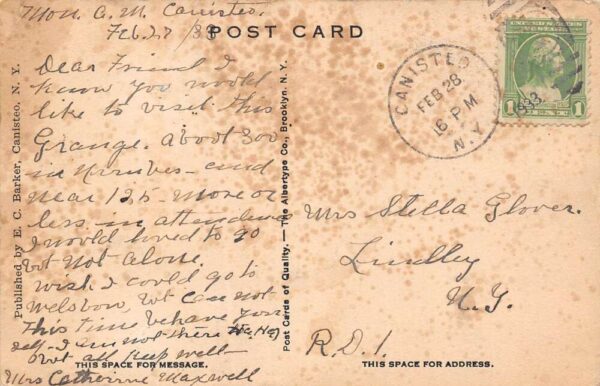 Mon. A.M. Canisteo.
Feb 27 /33
POST CARD
Dear Friend I
know you would
like to visit this
Grange. about 300
in number - and
near 125 - more or
less - in attendance
I would loved to go
but not alone.
wish I could go to
Welsbon, but can not
this time behave your
self - I am not there He, He)
but all keep well -
Mrs Catherine Maxwell
THIS SPACE FOR MESSAGE.
Published by E. C. Barker, Canisteo, N. Y.
Post Cards of Quality. — The Albertype Co., Brooklyn, N. Y.
CANISTEO
FEB 28
6 PM
1933
N.Y.
1 1
Mrs Stella Glover.
Lindley
N.Y.
R.D.1.
THIS SPACE FOR ADDRESS.